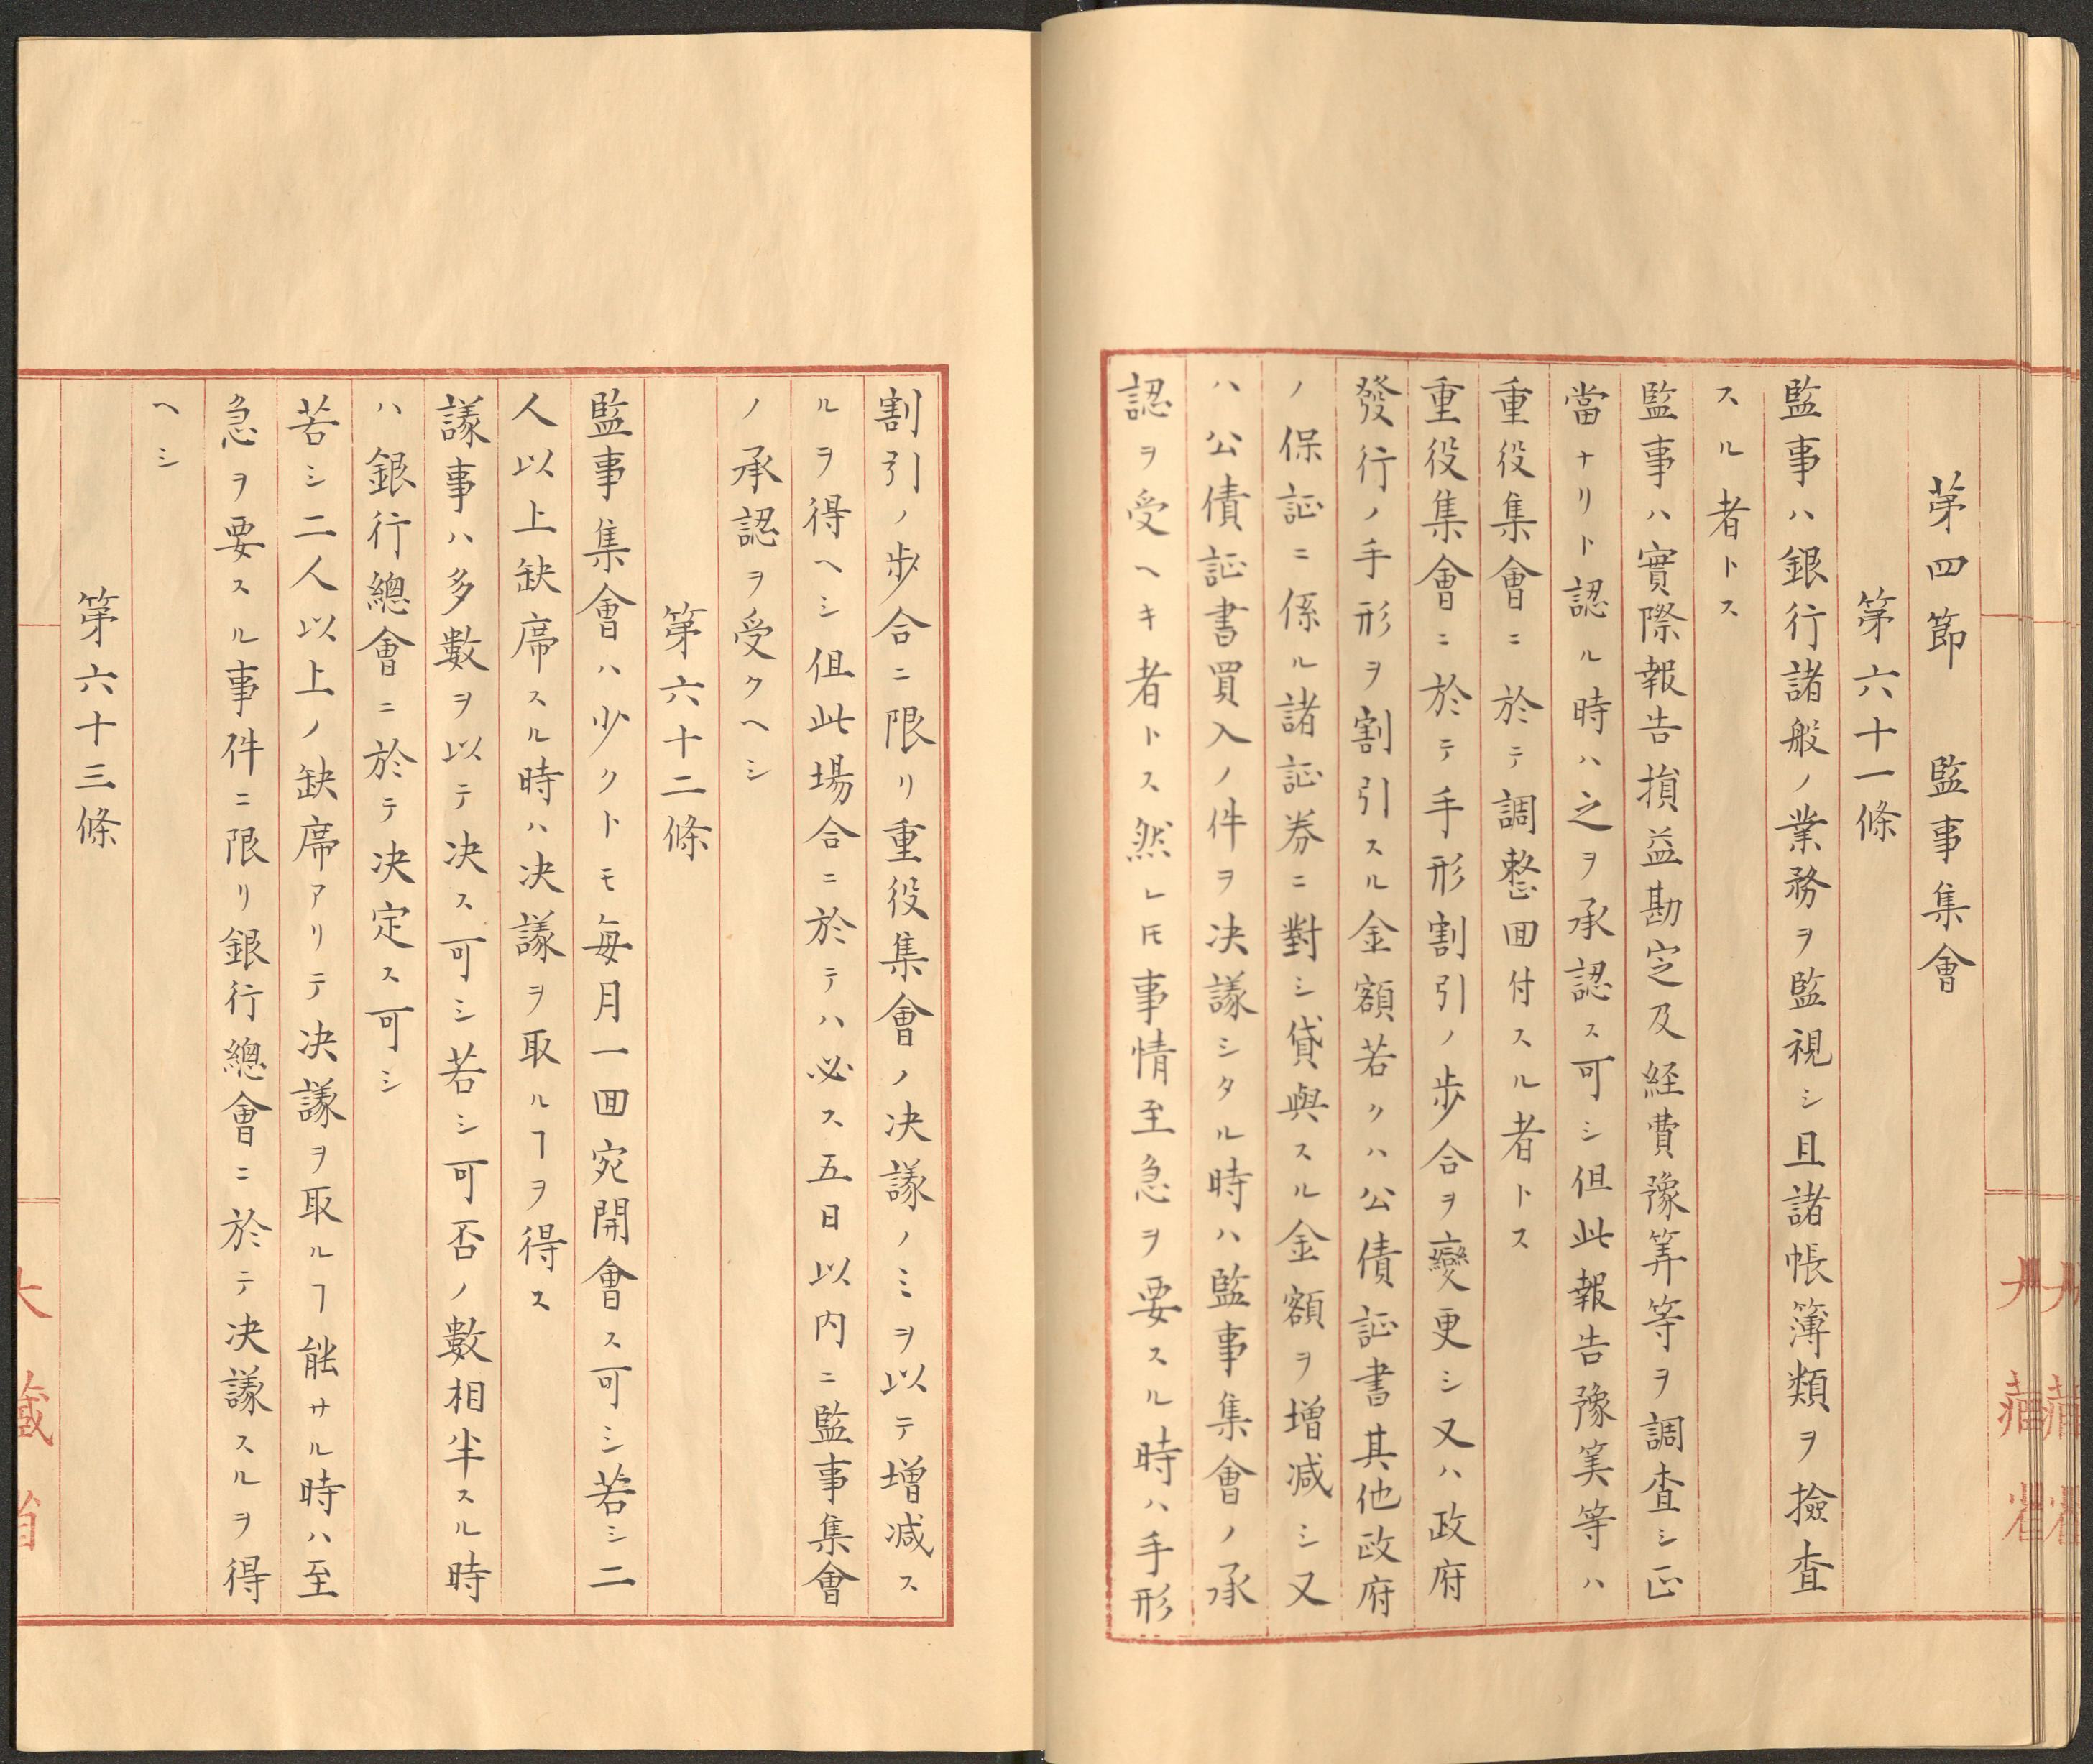 第四節 監事集會
第六十一條
監事ハ銀行諸般ノ業務ヲ監視シ且諸帳簿類ヲ撿査
スル者トス
監事ハ實際報告損益勘定及経費豫筭等ヲ調査シ正
當ナリト認ル時ハ之ヲ承認ス可シ但此報告豫筭等ハ
重役集會ニ於テ調整囬付スル者トス
重役集會ニ於テ手形割引ノ歩合ヲ變更シ又ハ政府
發行ノ手形ヲ割引スル金額若クハ公債証書其他政府
ノ保証ニ係ル諸証券ニ對シ貸與スル金額ヲ増減シ又
ハ公債証書買入ノ件ヲ决議シタル時ハ監事集會ノ承
認ヲ受ヘキ者トス然レ𪜈事情至急ヲ要スル時ハ手形
割引ノ歩合ニ限リ重役集會ノ决議ノミヲ以テ増减ス
ルヲ得ヘシ但此場合ニ於テハ必ス五日以内ニ監事集會
ノ承認ヲ受クヘシ
第六十二條
監事集會ハ少クトモ毎月一囬宛開會ス可シ若シ二
人以上缺席スル時ハ决議ヲ取ルヿヲ得ス
議事ハ多數ヲ以テ决ス可シ若シ可否ノ數相半スル時
ハ銀行總會ニ於テ决定ス可シ
若シ二人以上ノ缺席アリテ决議ヲ取ルヿ能サル時ハ至
急ヲ要スル事件ニ限リ銀行總會ニ於テ决議スルヲ得
ヘシ
第六十三條
大藏省